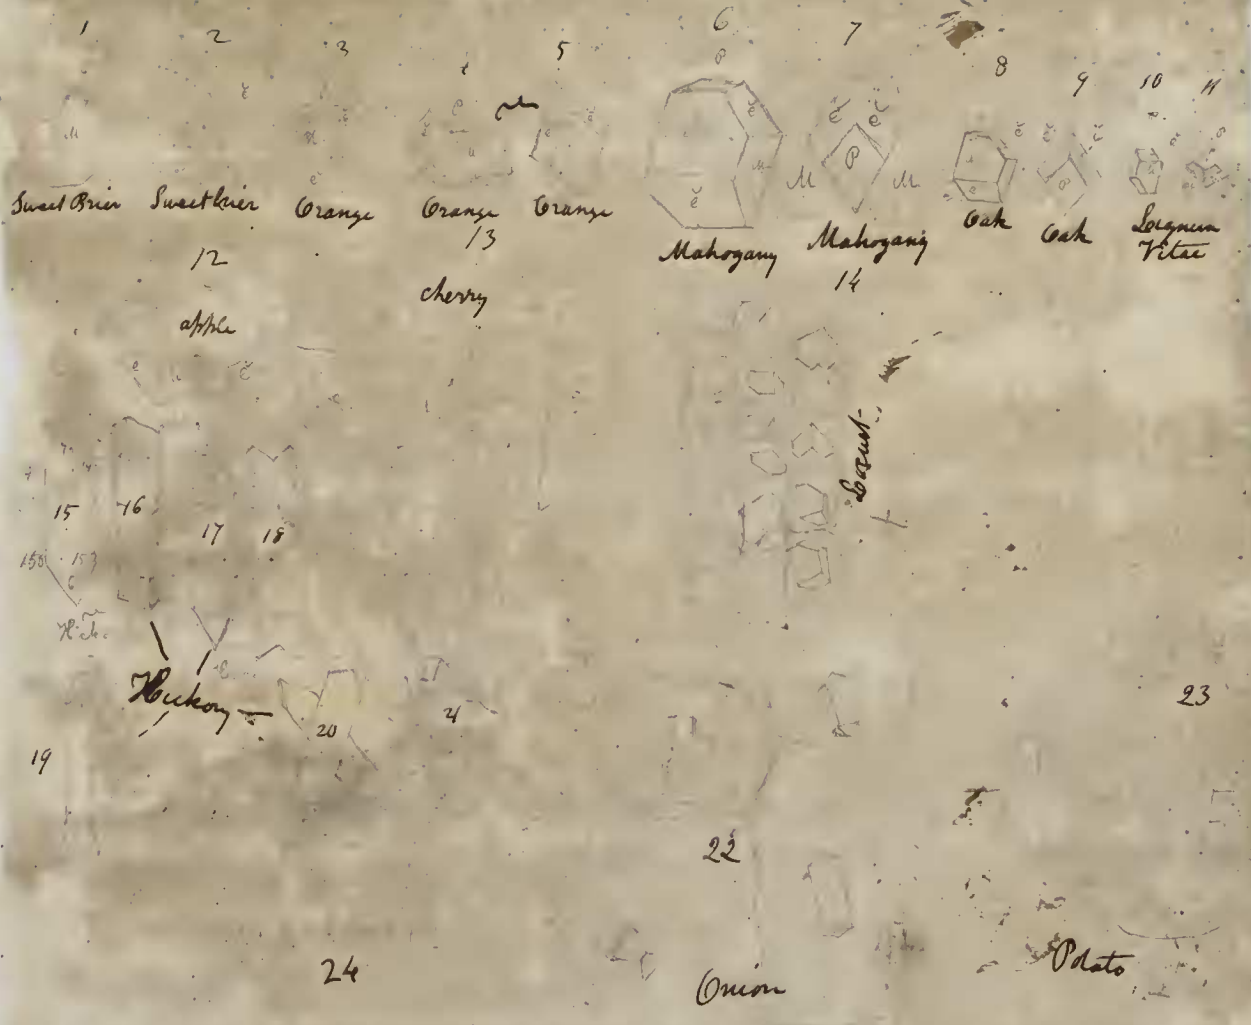 1 2 3 4 5 6 7 8 9 10 11
Sweet Brier Sweetbrier Orange Orange Orange Mahogany Mahogany Oak Oak Lignum Vitae
12 13 14
apple cherry Locust
15 16 17 18
150 153
6
Hickory
19 20 21 22 23
24 Onion Potato